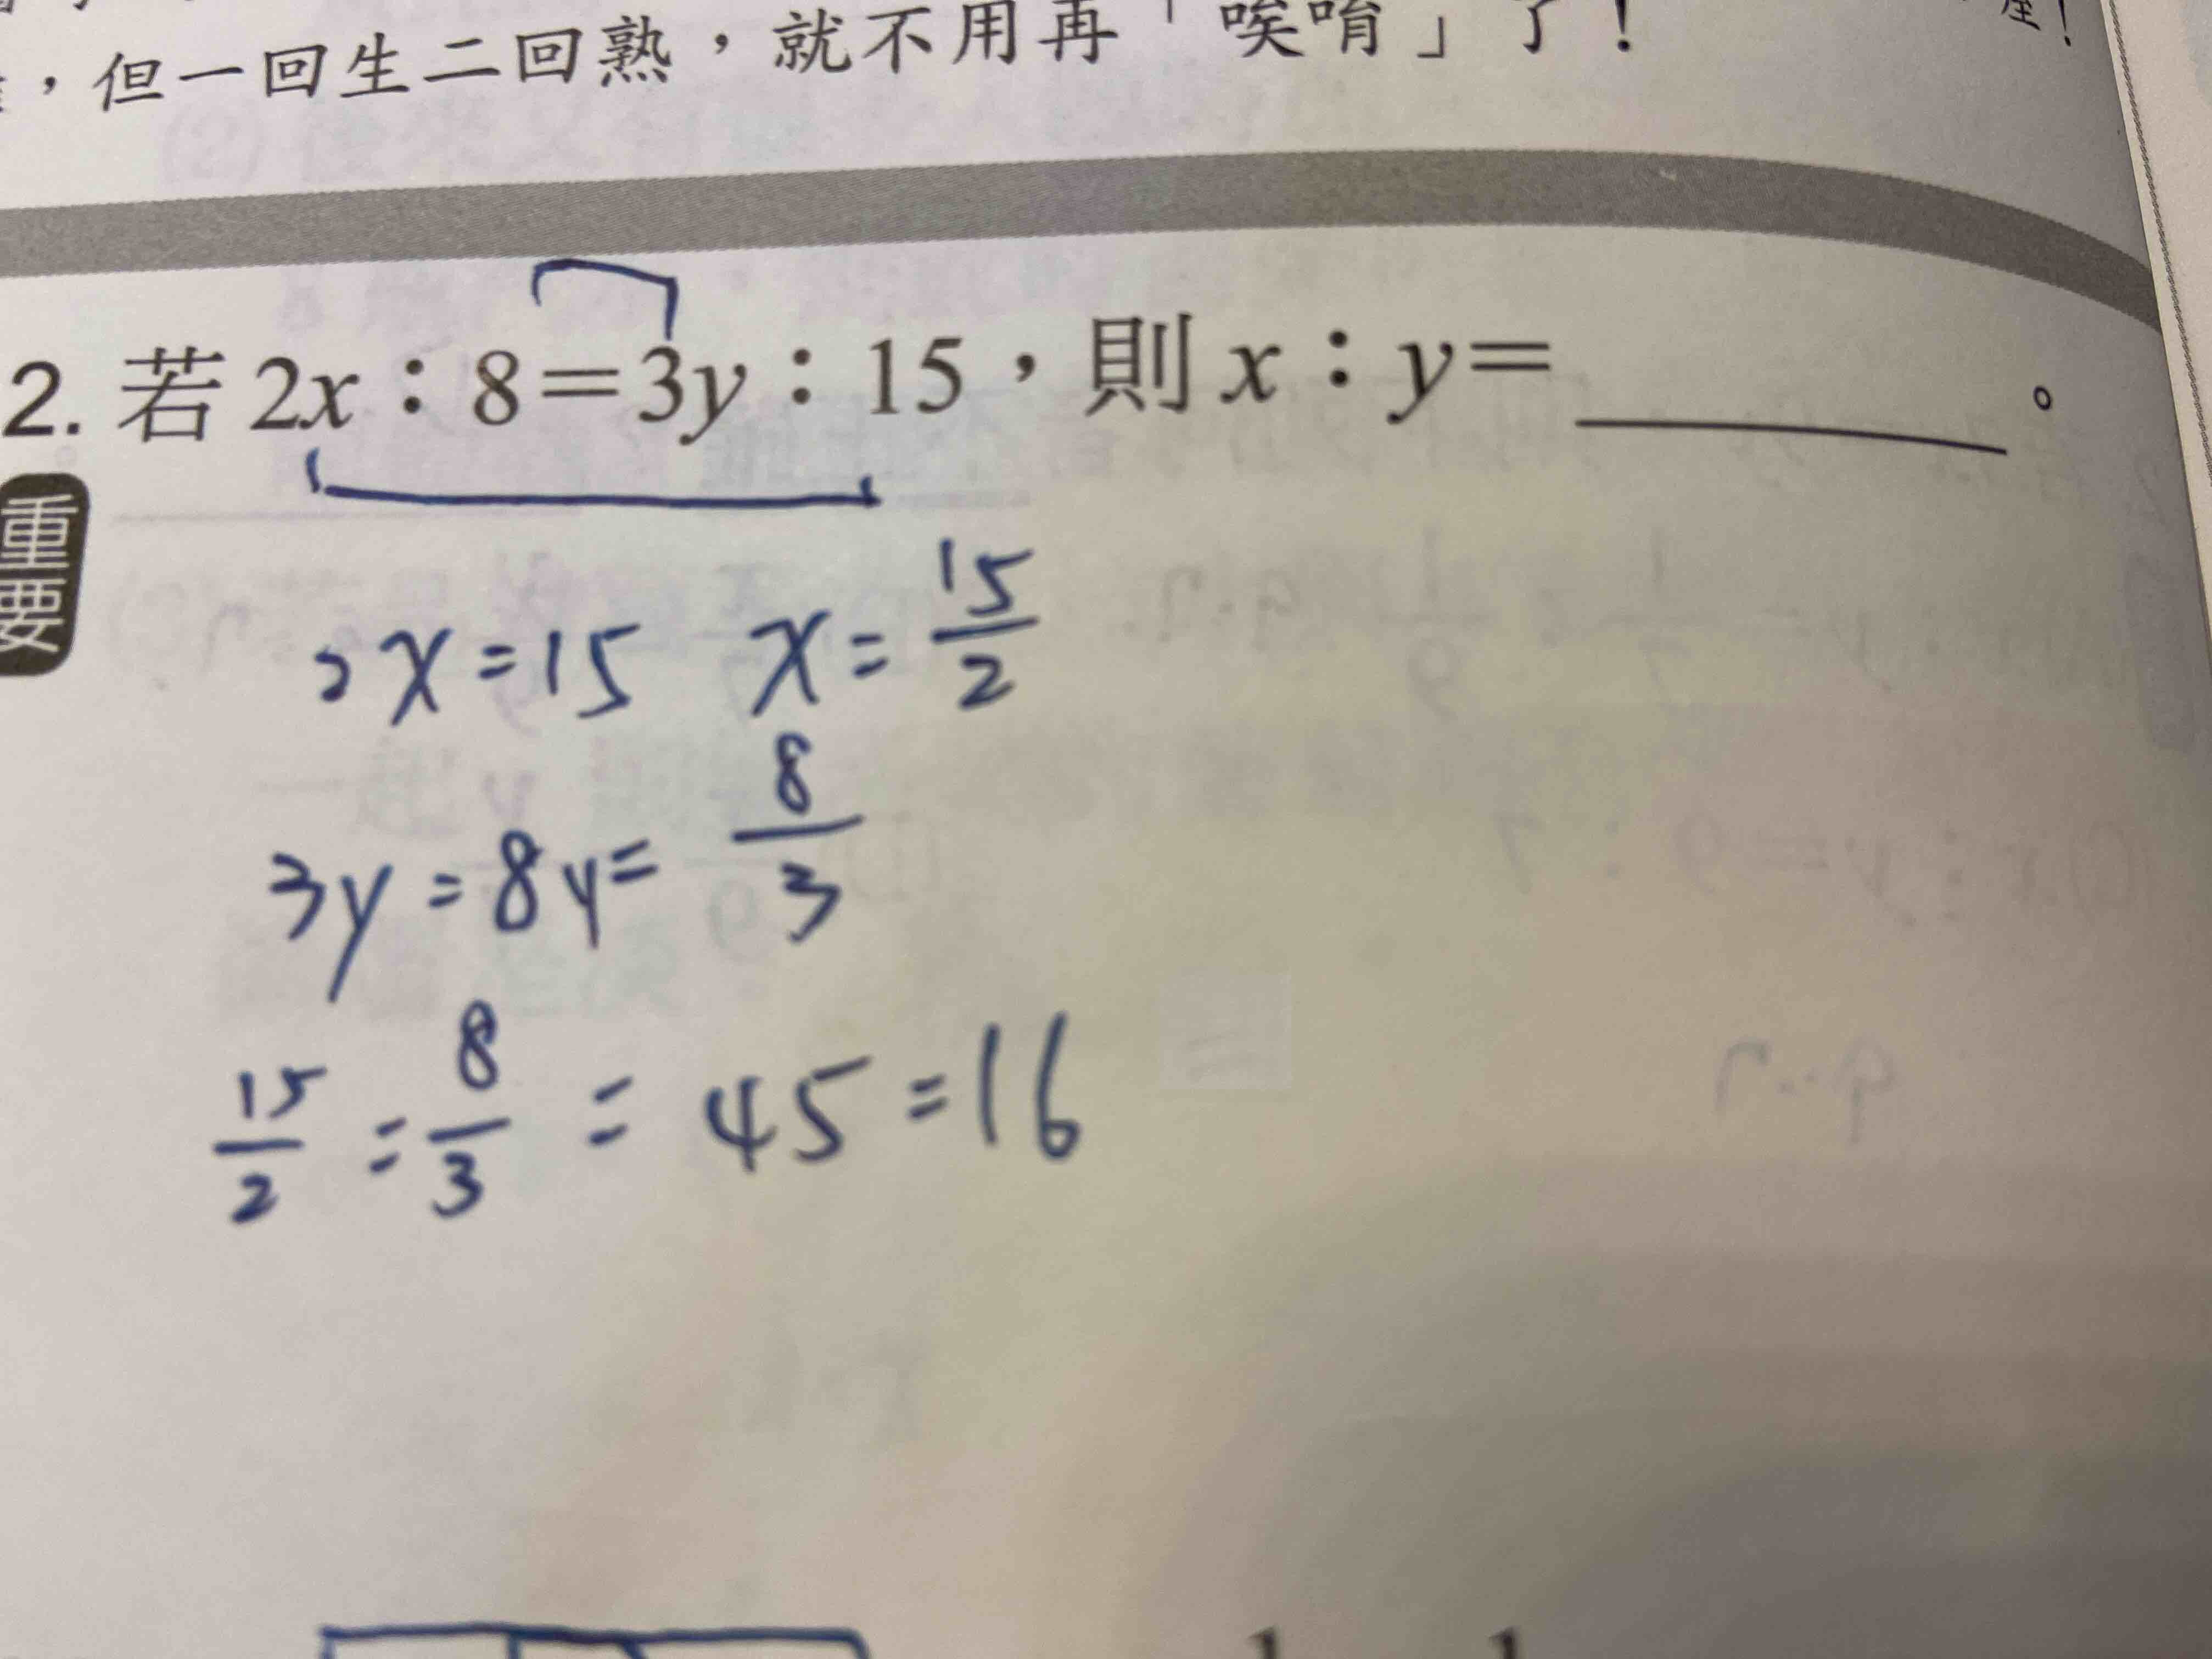 ，但一回生二回熟，就不用再「唉唷」了！
2. 若 2x：8＝3y：15，則 x：y＝＿＿＿＿。
重要
2x=15 x=15/2
3y=8 y=8/3
15/2=8/3=45=16